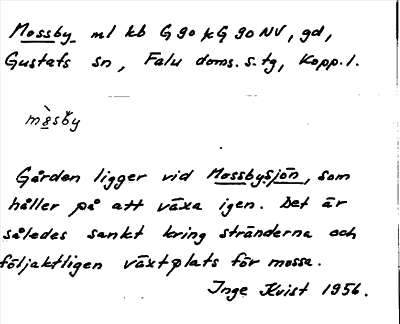 Mossby ml kb G 90 kG 90 NV, gd,
Gustafs sn, Falu doms. s. tg, Kopp. l.
mòsby
Gården ligger vid Mossbysjön, som
håller på att växa igen. Det är
således sankt kring stränderna och
följaktligen växtplats för mossa.
Inge Kvist 1956.